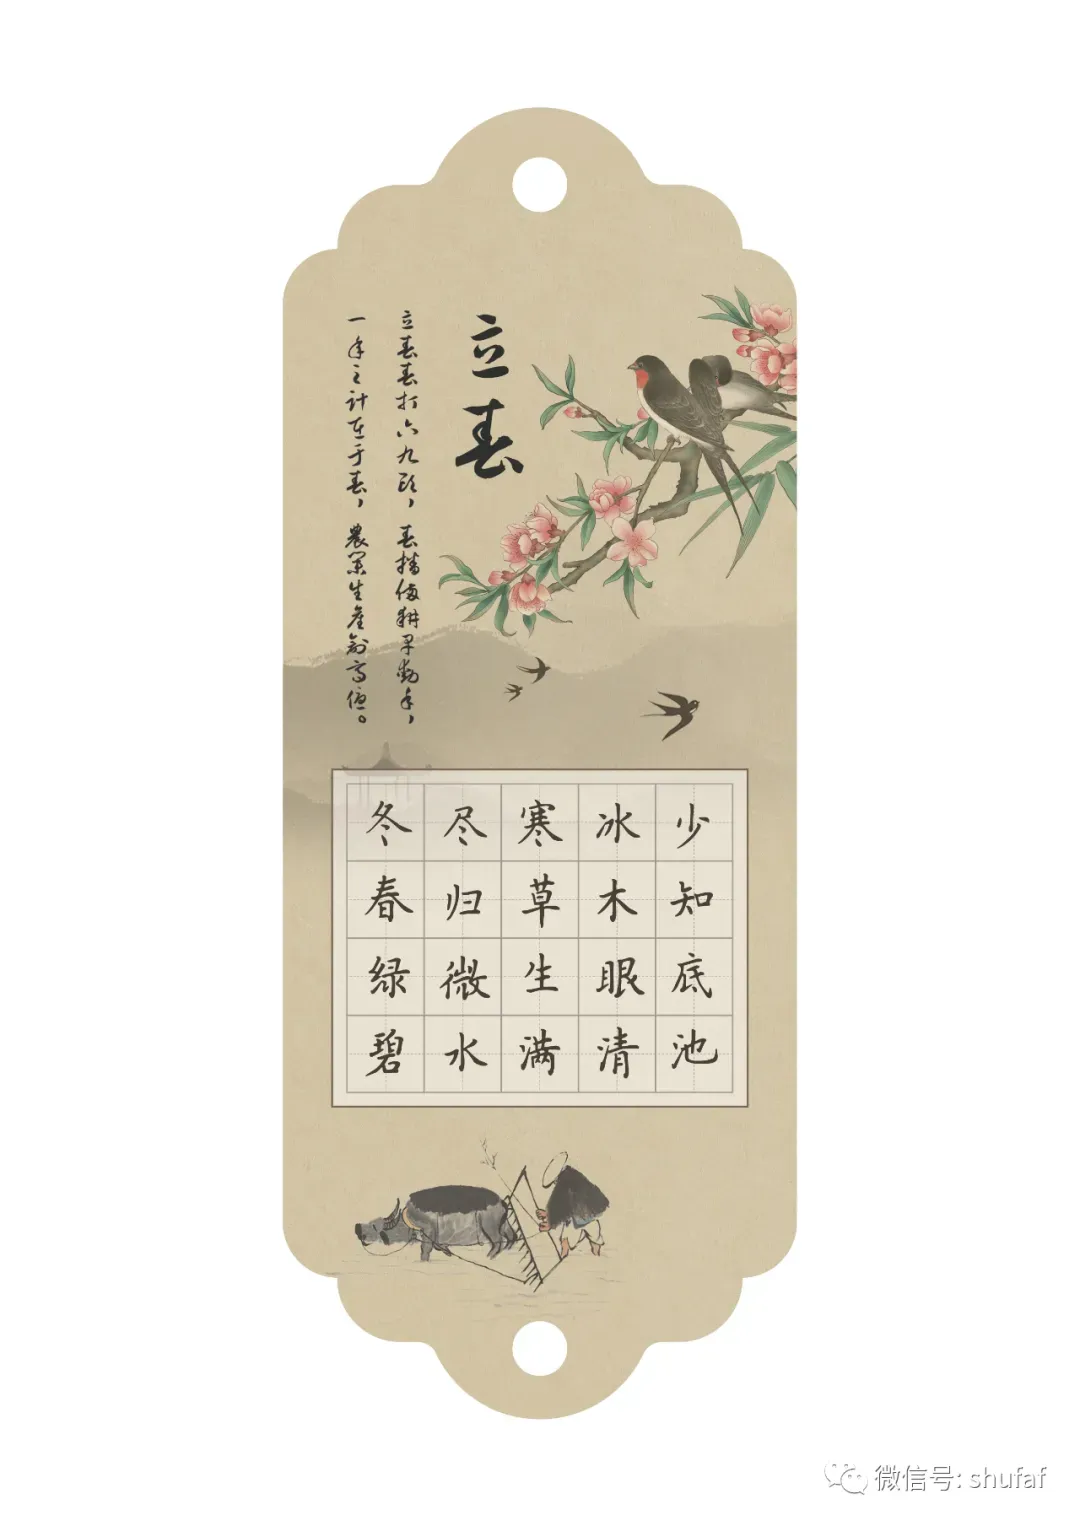 立春
立春春打六九头，春播备耕早动手，
一年之计在于春，農業生產创高优。
冬尽寒冰少
春归草木知
绿微生眼底
碧水满清池
微信号: shufaf